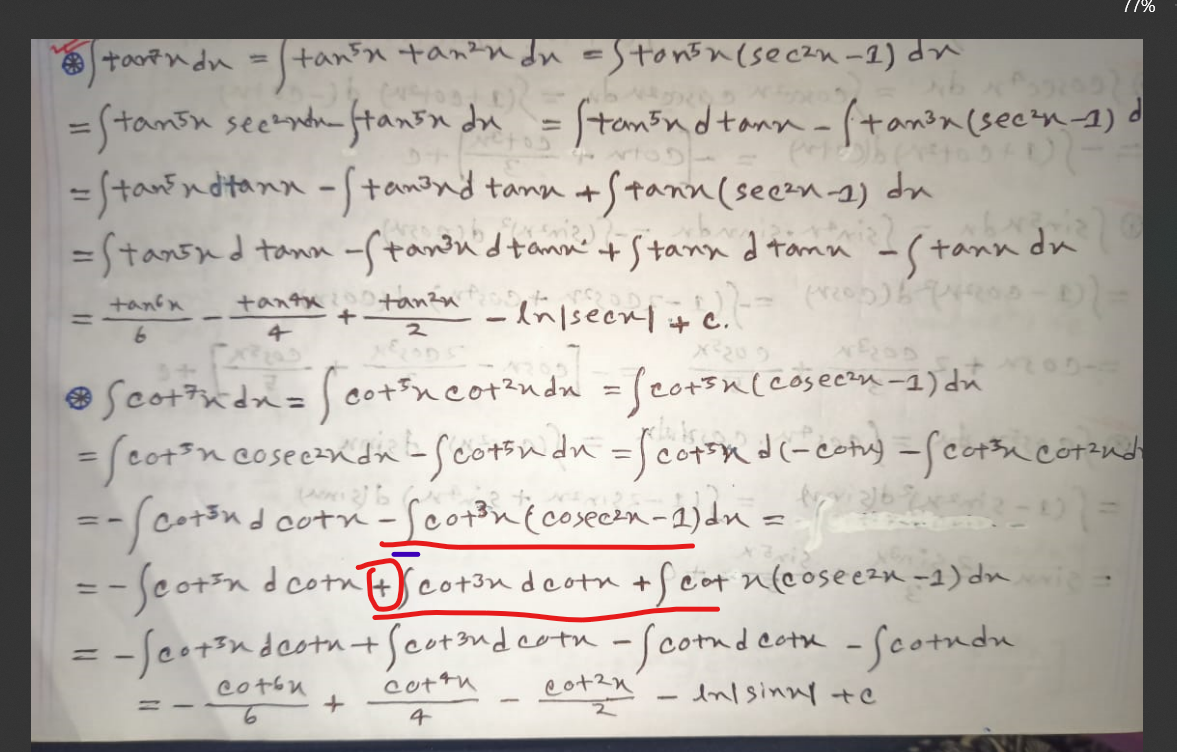 77%
∫tan⁷x dx = ∫tan⁵x tan²x dx = ∫tan⁵x(sec²x-1) dx
= ∫tan⁵x sec²xdx-∫tan⁵x dx = ∫tan⁵x d tanx - ∫tan³x(sec²x-1) d
= ∫tan⁵x dtanx - ∫tan³x d tanx + ∫tanx(sec²x-1) dx
= ∫tan⁵x d tanx -∫tan³x d tanx + ∫tanx d tanx - ∫tanx dx
= tan⁶x/6 - tan⁴x/4 + tan²x/2 - ln|secx| + c.
∫cot⁷x dx = ∫cot⁵x cot²x dx = ∫cot⁵x(cosec²x-1)dx
= ∫cot⁵x cosec²x dx -∫cot⁵x dx = ∫cot⁵x d(-cotx) -∫cot³x cot²x d
= -∫cot⁵x d cotx -∫cot³x(cosec²x-1)dx =
= -∫cot⁵x d cotx +∫cot³x d cotx +∫cot x(cosec²x-1)dx
= -∫cot⁵x dcotx +∫cot³x d cotx -∫cotx d cotx -∫cotx dx
= - cot⁶x/6 + cot⁴x/4 - cot²x/2 - ln|sinx| +c